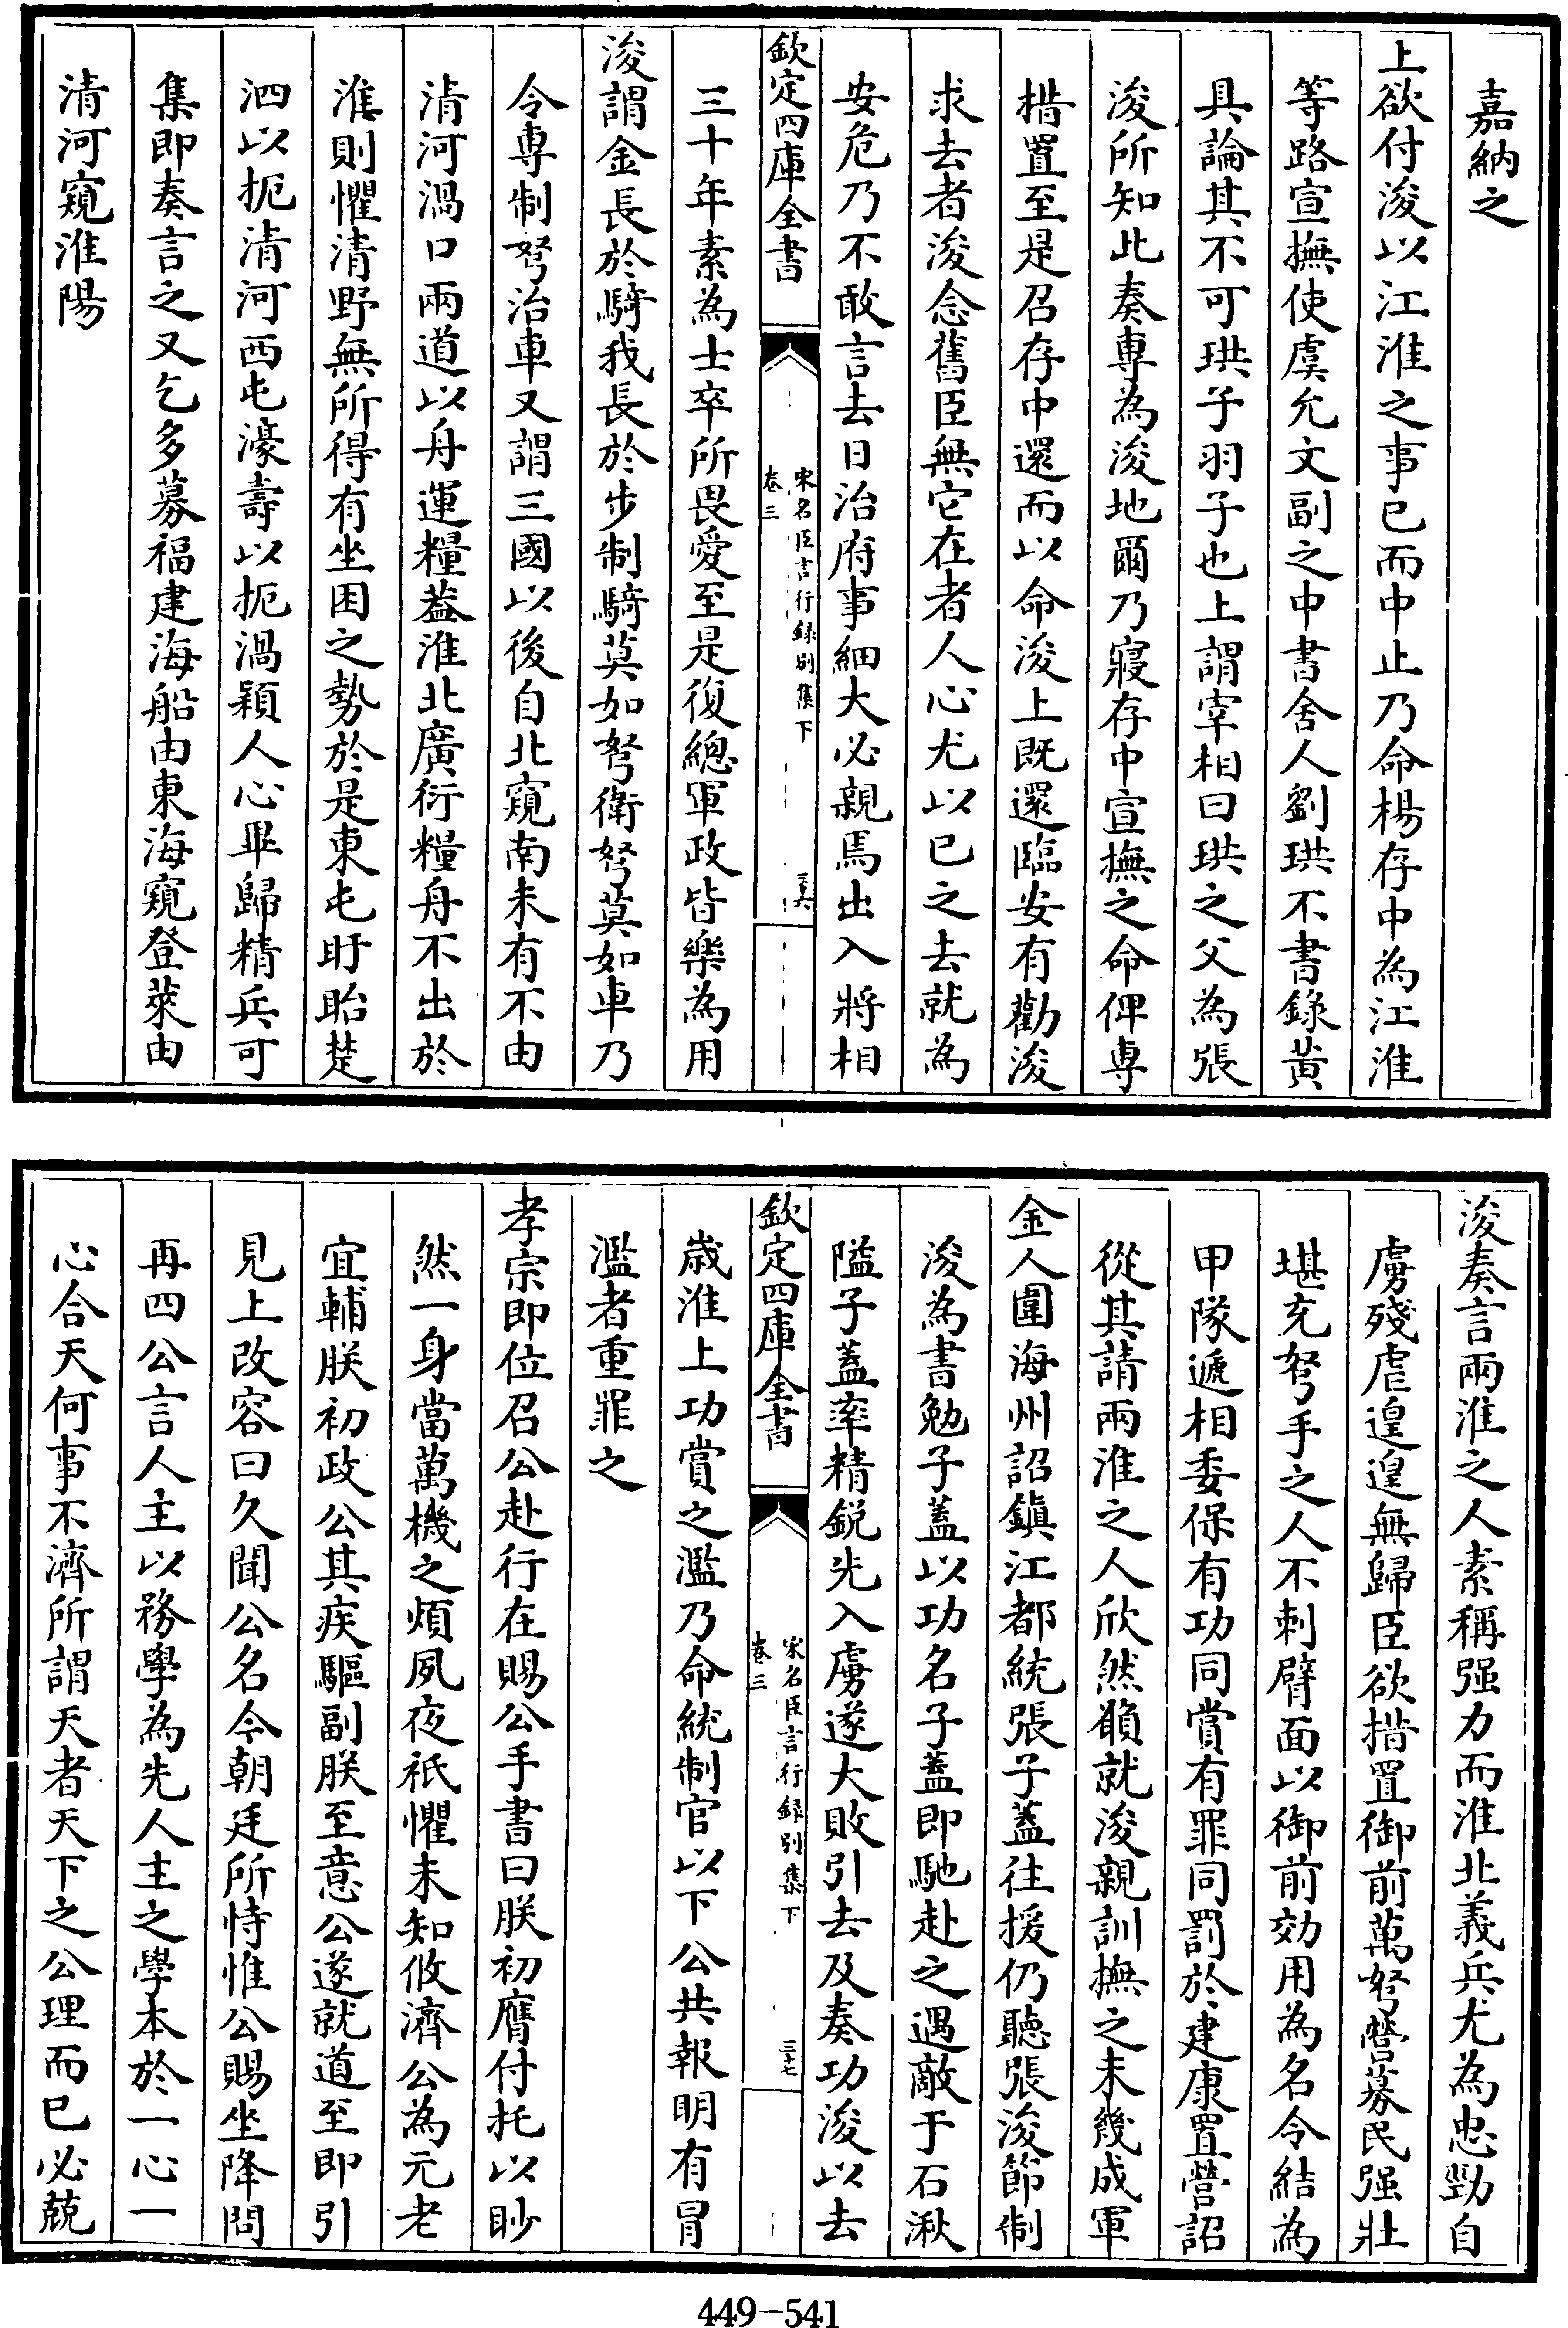 嘉納之
上欲付浚以江淮之事已而中止乃命楊存中為江淮
等路宣撫使虞允文副之中書舍人劉珙不書錄黃
具論其不可珙子羽子也上謂宰相曰珙之父為張
浚所知此奏專為浚地爾乃寢存中宣撫之命俾專
措置至是召存中還而以命浚上既還臨安有勸浚
求去者浚念舊臣無它在者人心尤以已之去就為
安危乃不敢言去日治府事細大必親焉出入將相
欽定四庫全書
宋名臣言行録別集下
卷三
三十六
三十年素為士卒所畏愛至是復總軍政皆樂為用
浚謂金長於騎我長於步制騎莫如弩衛弩莫如車乃
令專制弩治車又謂三國以後自北窺南未有不由
清河渦口兩道以舟運糧葢淮北廣衍糧舟不出於
淮則懼清野無所得有坐困之勢於是東屯盱眙楚
泗以扼清河西屯濠壽以扼渦潁人心畢歸精兵可
集即奏言之又乞多募福建海船由東海窺登萊由
清河窺淮陽
浚奏言兩淮之人素稱强力而淮北義兵尤為忠勁自
虜殘虐遑遑無歸臣欲措置御前萬弩營募民强壯
堪充弩手之人不刺臂面以御前効用為名令結為
甲隊遞相委保有功同賞有罪同罰於建康置營詔
從其請兩淮之人欣然願就浚親訓撫之未幾成軍
金人圍海州詔鎮江都統張子葢往援仍聽張浚節制
浚為書勉子葢以功名子葢即馳赴之遇敵于石湫
隘子葢率精銳先入虜遂大敗引去及奏功浚以去
欽定四庫全書
宋名臣言行録別集下
卷三
三十七
歲淮上功賞之濫乃命統制官以下公共報明有冒
濫者重罪之
孝宗即位召公赴行在賜公手書曰朕初膺付托以眇
然一身當萬機之煩夙夜祇懼未知攸濟公為元老
宜輔朕初政公其疾驅副朕至意公遂就道至即引
見上改容曰久聞公名今朝廷所恃惟公賜坐降問
再四公言人主以務學為先人主之學本於一心一
心合天何事不濟所謂天者天下之公理而已必兢
449-541